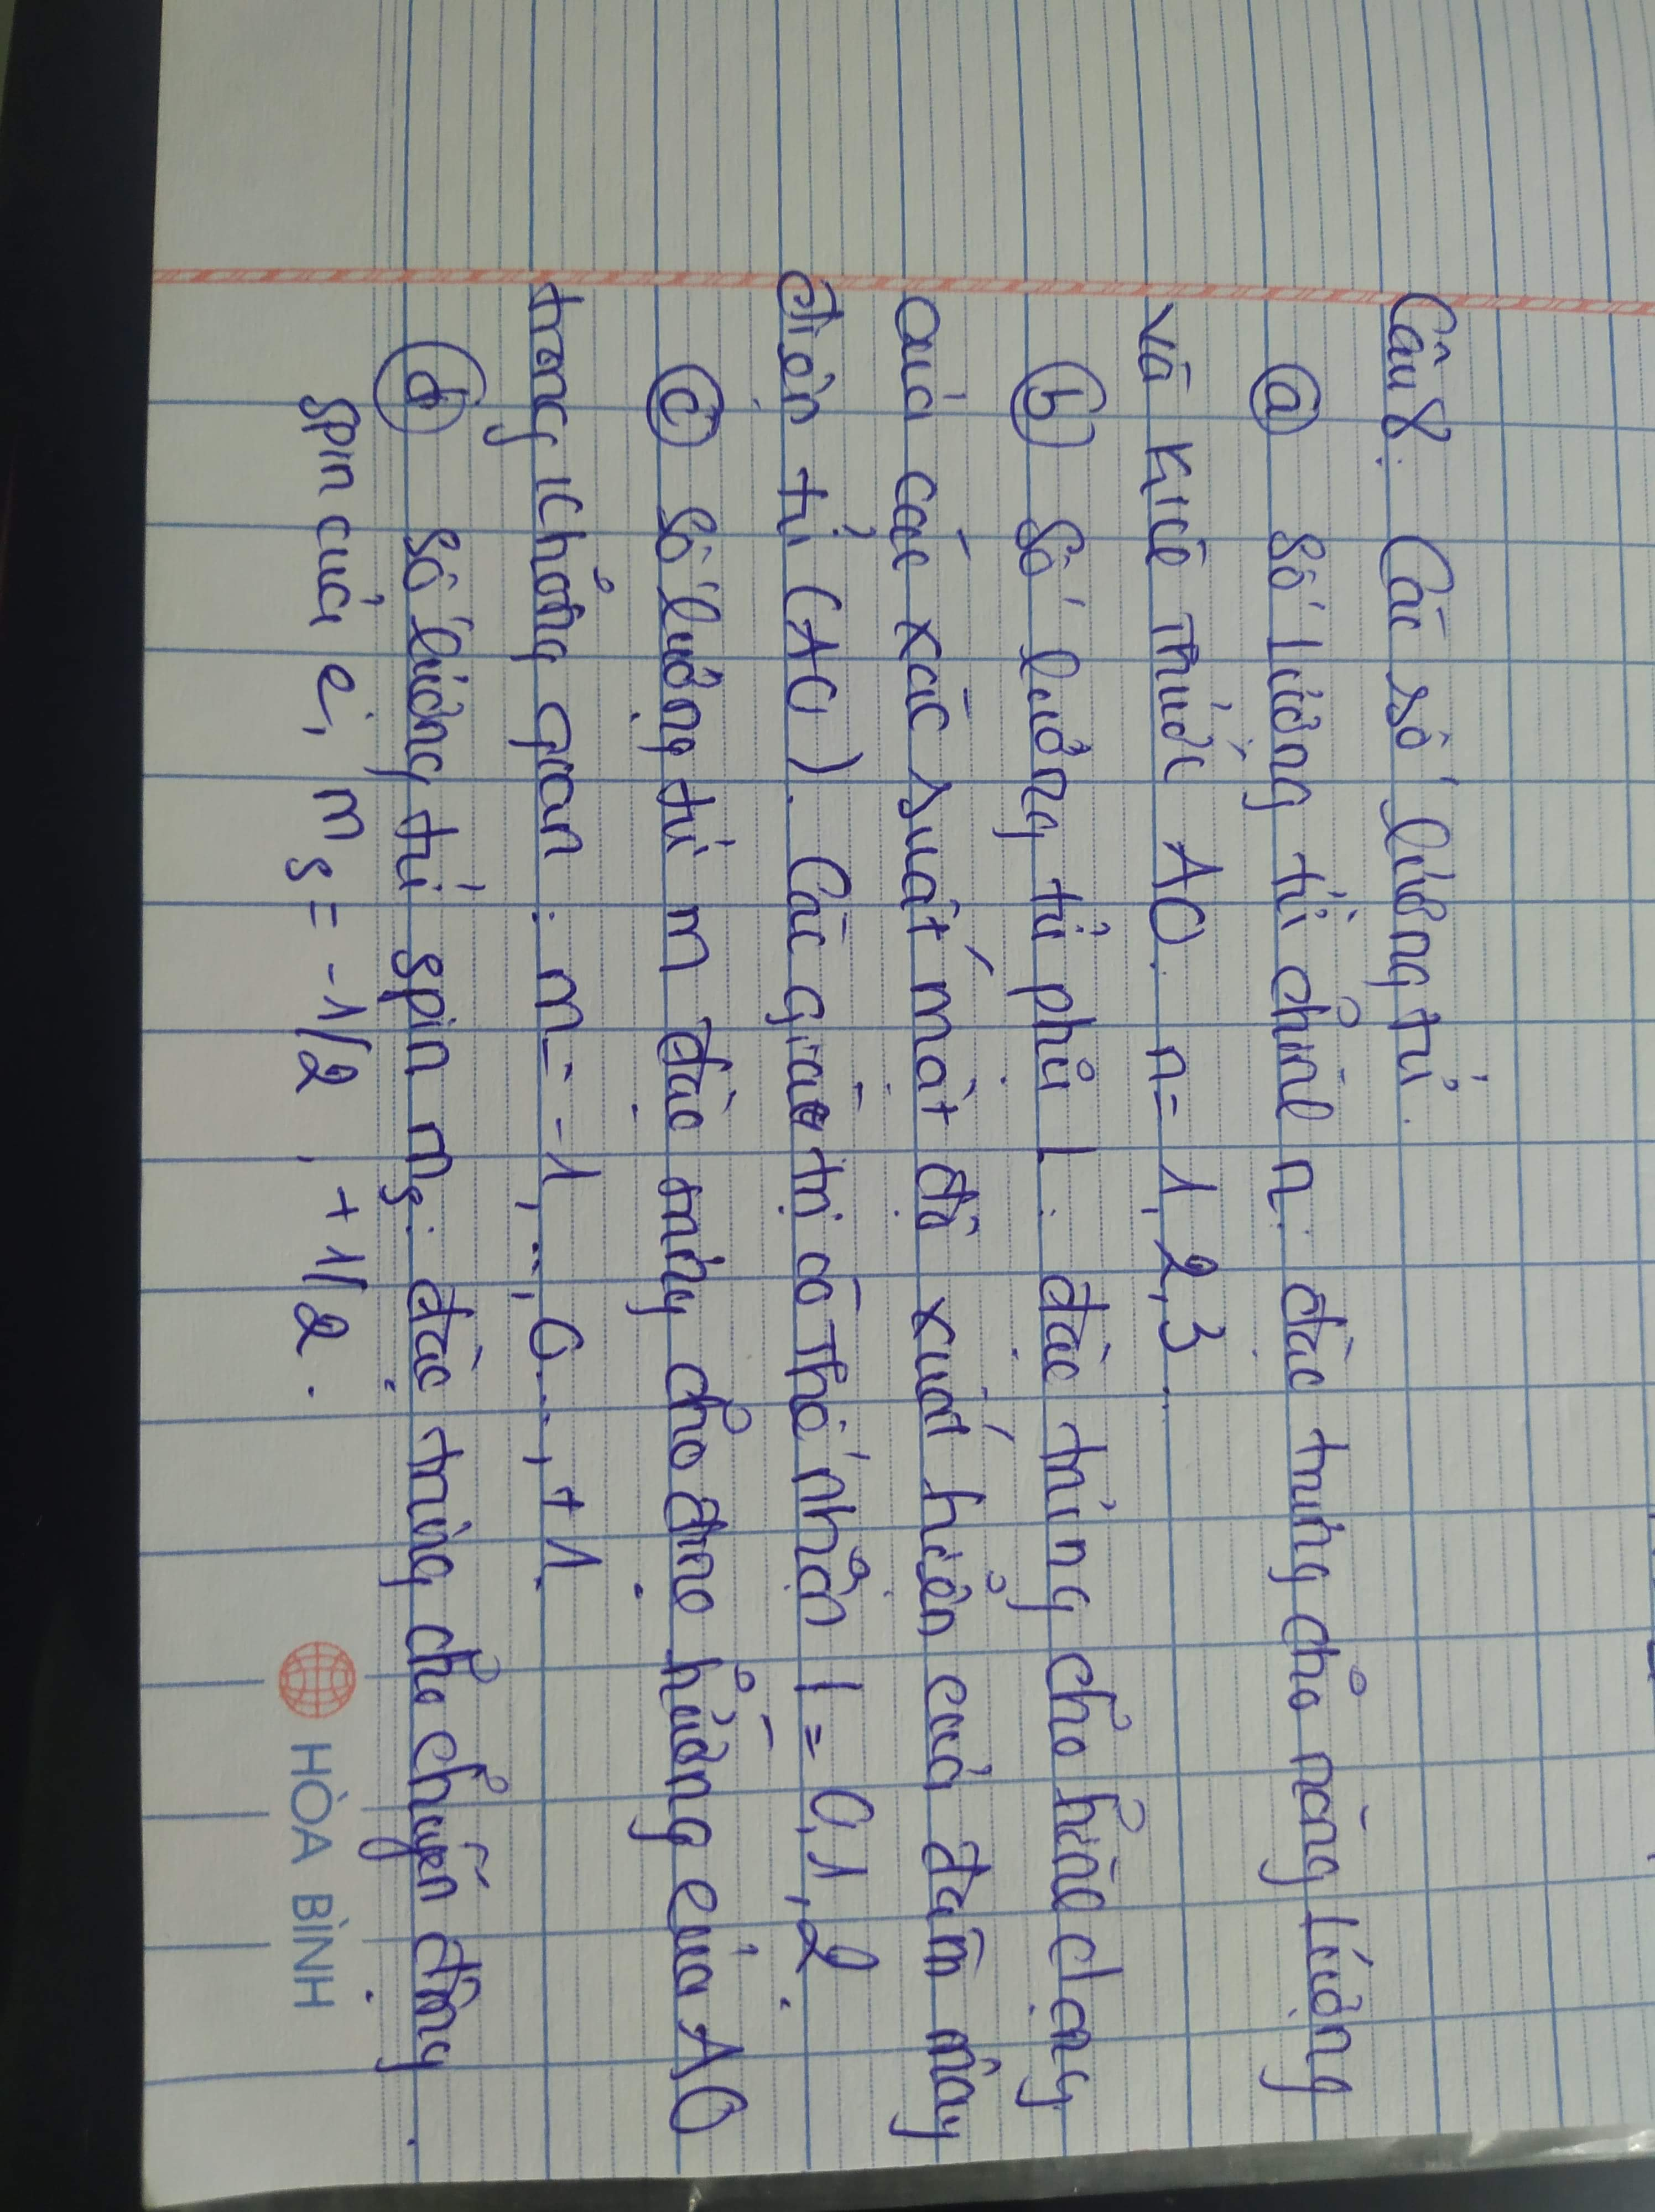 Câu 8: Các số lượng tử.
ⓐ Số lượng tử chính n: đặc trưng cho năng lượng
và kích thước AO. n = 1, 2, 3.
ⓑ Số lượng tử phụ l: đặc trưng cho hình dạng
của các xác suất mật độ xuất hiện của đám mây
điện tử (AO). Các giá trị có thể nhận l = 0, 1, 2.
ⓒ Số lượng tử m đặc trưng cho định hướng của AO
trong không gian: m = -1, .., 0 .., +1.
ⓓ Số lượng tử spin ms: đặc trưng cho chuyển động
spin của e, ms = -1/2, +1/2.
HÒA BÌNH